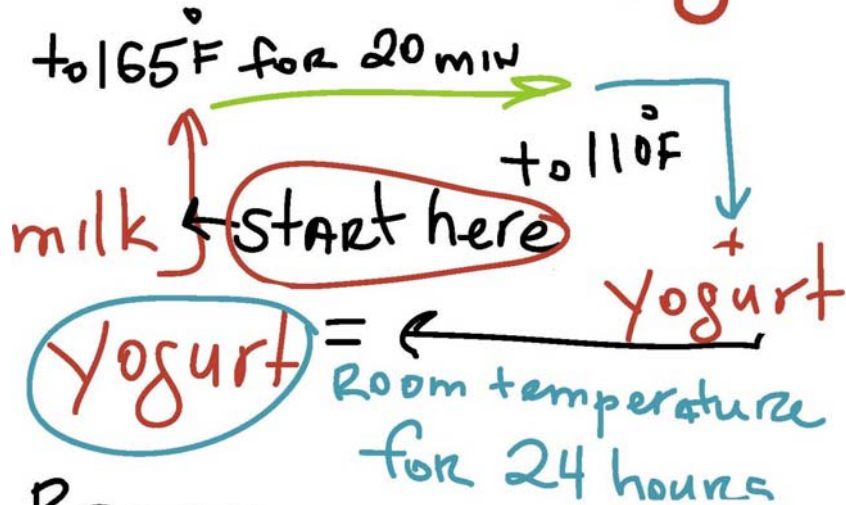 to 165°F for 20 min
to 110°F
milk
start here
+
yogurt
yogurt =
Room temperature
for 24 hours